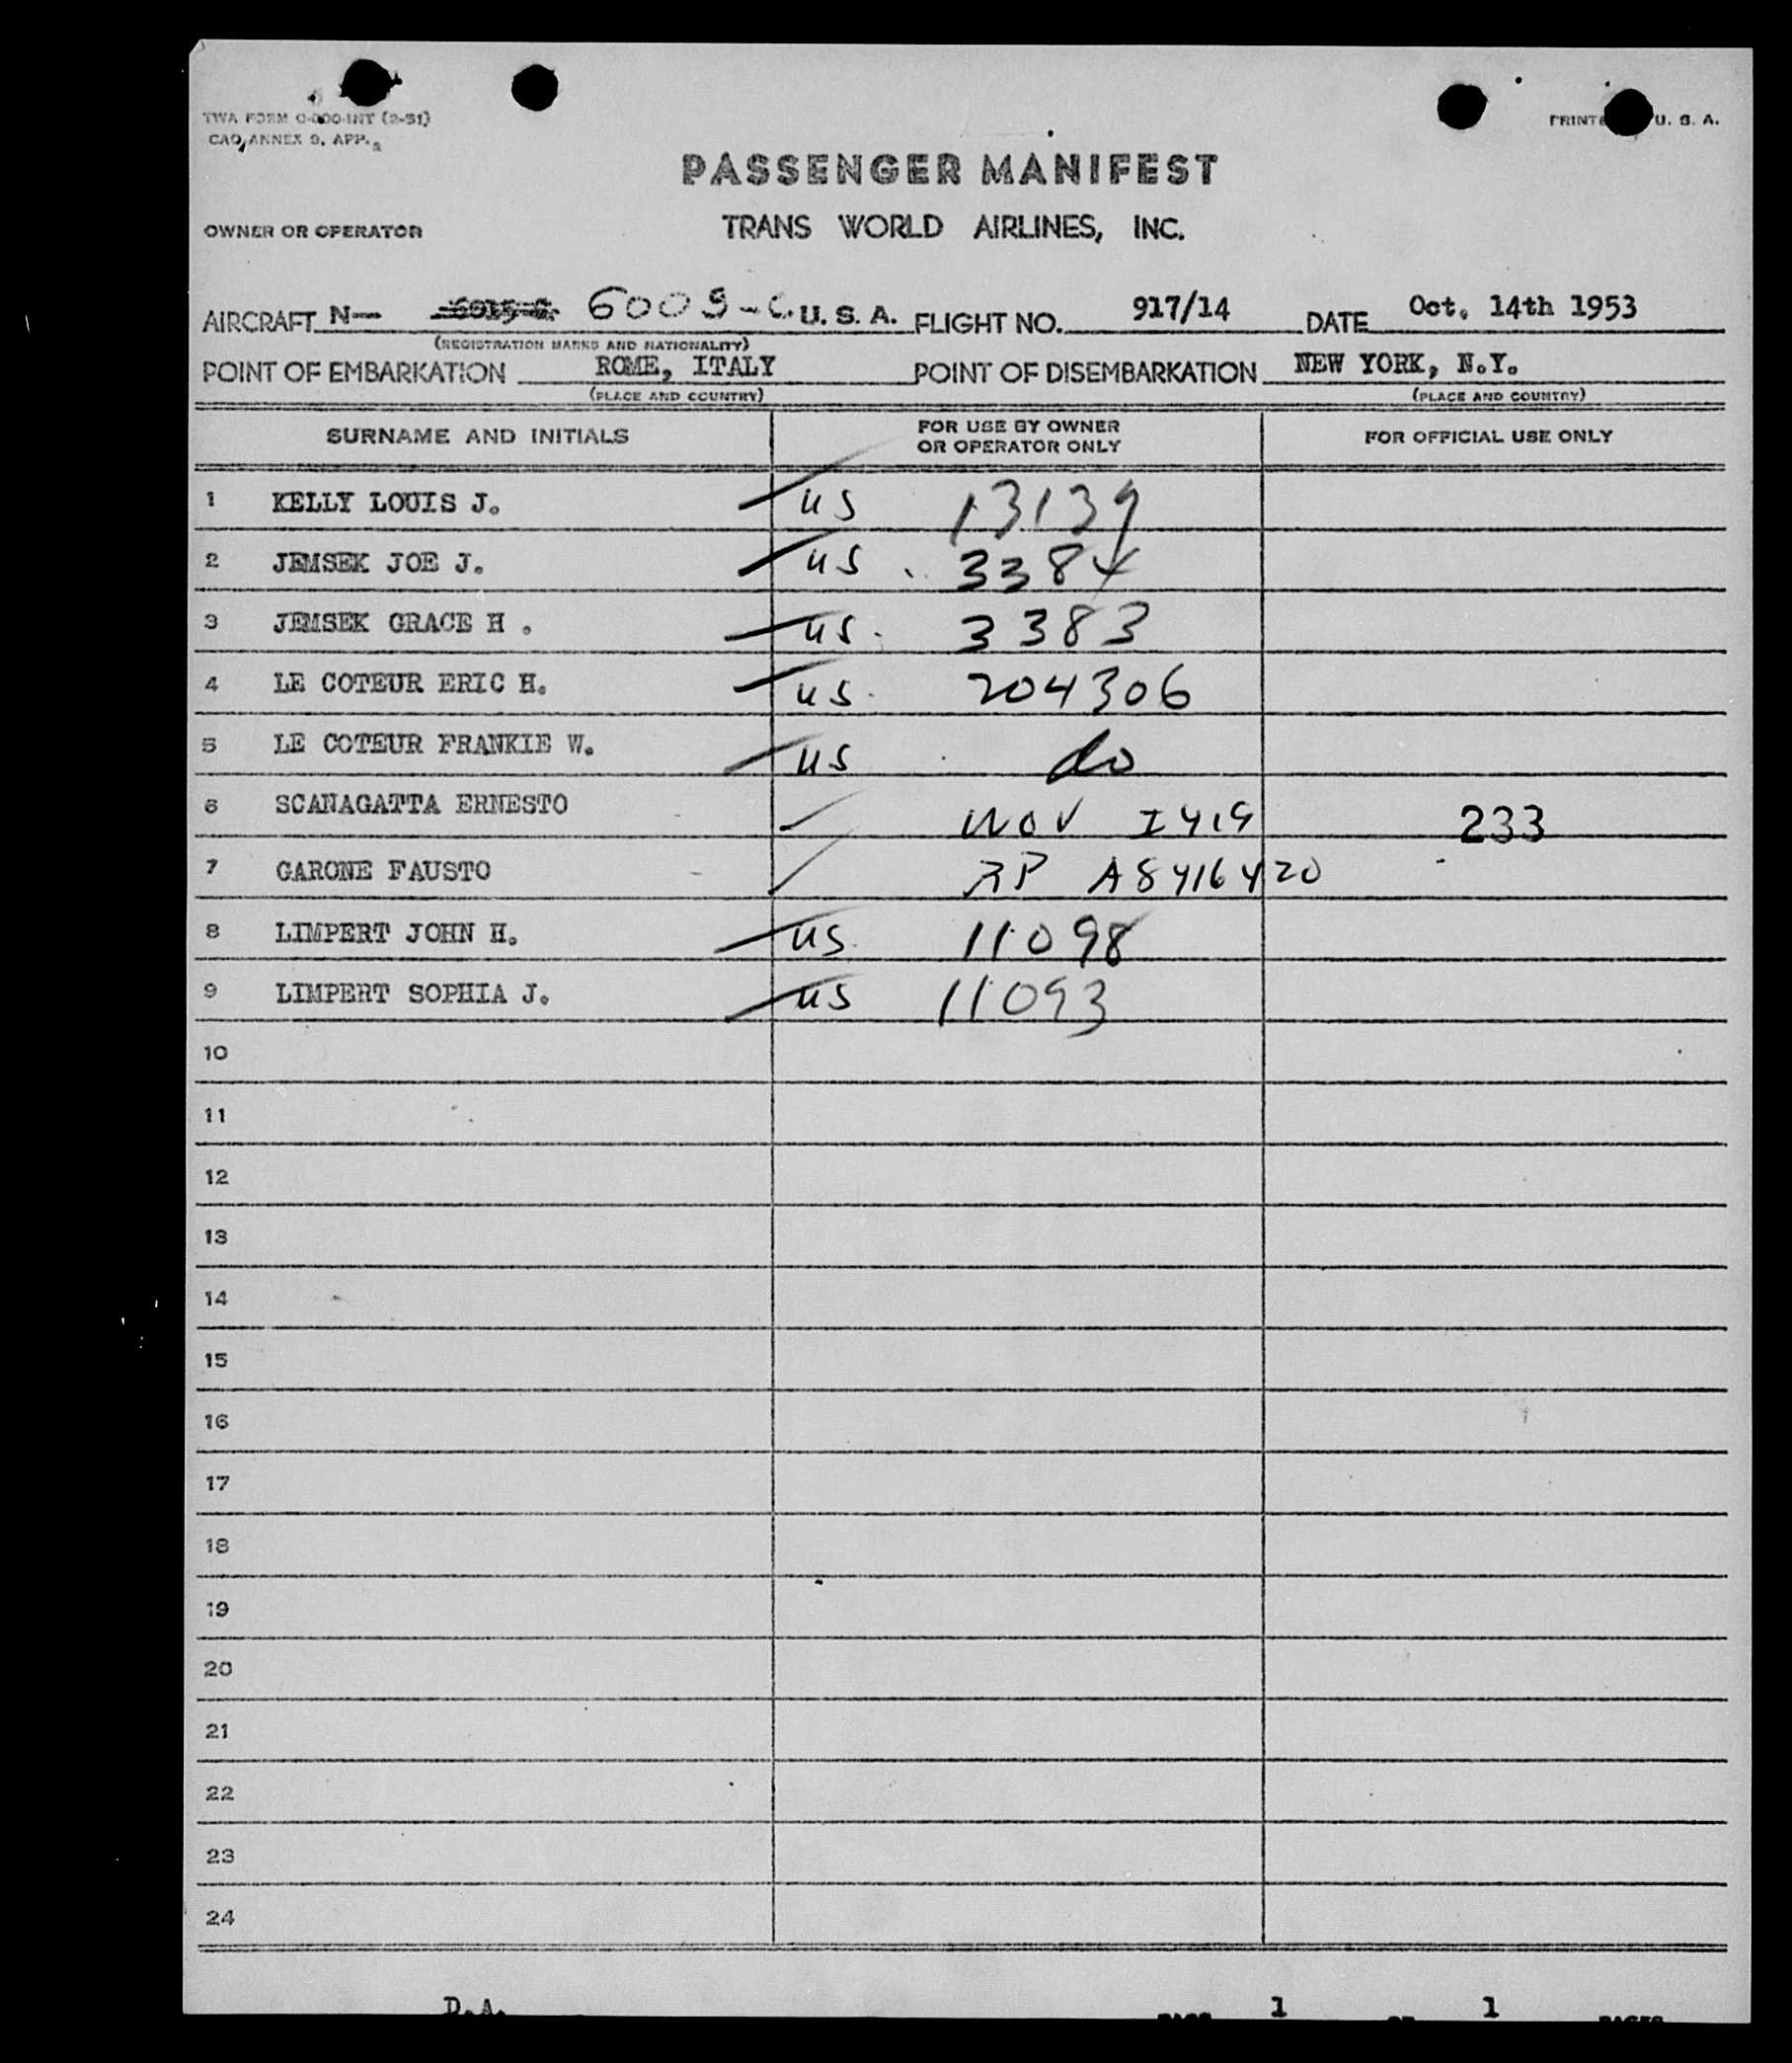 TWA FORM
CAO, ANNEX 9, APP.
U. S. A.
PASSENGER MANIFEST
OWNER OR OPERATOR TRANS WORLD AIRLINES, INC.
AIRCRAFT N— 6009-C. U. S. A. FLIGHT NO. 917/14 DATE Oct. 14th 1953
(REGISTRATION MARKS AND NATIONALITY)
POINT OF EMBARKATION ROME, ITALY POINT OF DISEMBARKATION NEW YORK, N.Y.
(PLACE AND COUNTRY) (PLACE AND COUNTRY)
SURNAME AND INITIALS FOR USE BY OWNER OR OPERATOR ONLY FOR OFFICIAL USE ONLY
1 KELLY LOUIS J. US 13139
2 JEMSEK JOE J. US 3384
3 JEMSEK GRACE H . US. 3383
4 LE COTEUR ERIC H. US. 204306
5 LE COTEUR FRANKIE W. US do
6 SCANAGATTA ERNESTO NOV I419 233
7 GARONE FAUSTO RP A8416420
8 LIMPERT JOHN H. US. 11098
9 LIMPERT SOPHIA J. US 11093
10
11
12
13
14
15
16
17
18
19
20
21
22
23
24
D.A. 1 1